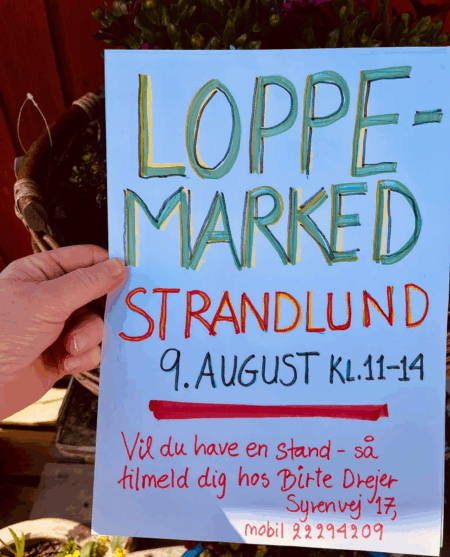 LOPPE-
MARKED
STRANDLUND
9. AUGUST KL. 11-14
Vil du have en stand - så
tilmeld dig hos Birte Drejer
Syrenvej 17,
mobil 22294209